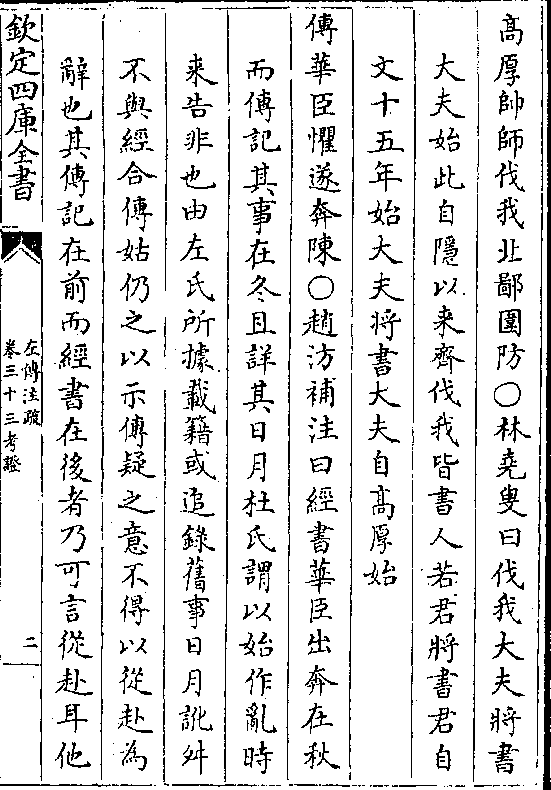 高厚帥師伐我北鄙圍防○林堯叟曰伐我大夫將書
大夫始此自隱以来齊伐我皆書人若君將書君自
文十五年始大夫將書大夫自高厚始
傳華臣懼遂奔陳○趙汸補注曰經書華臣出奔在秋
而傳記其事在冬且詳其日月杜氏謂以始作亂時
来告非也由左氏所據載籍或追錄舊事日月訛舛
不與經合傳姑仍之以示傳疑之意不得以從赴為
辭也其傳記在前而經書在後者乃可言從赴耳他
欽定四庫全書
左傳注疏
卷三十三考證
二